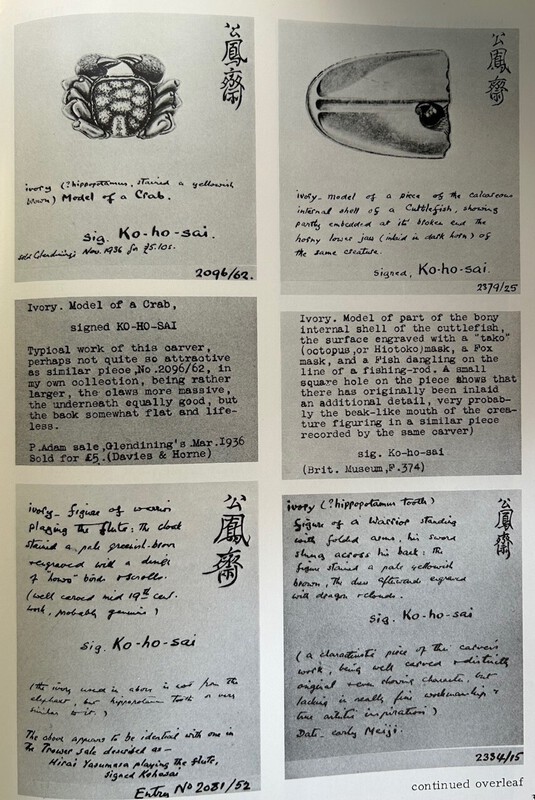 公鳳齋
ivory (?hippopotamus, stained a yellowish
brown) Model of a Crab.
Sig. Ko-ho-sai.
sold Glendining's Nov. 1936 for £5.10s.
2096/62.
公鳳齋
ivory- model of a piece of the calcareous
internal shell of a Cuttlefish, showing
partly embedded at its broken end the
horny lower jaw (inlaid in dark horn) of
the same creature.
signed, Ko-ho-sai.
2379/25
Ivory. Model of a Crab,
signed KO-HO-SAI
Typical work of this carver,
perhaps not quite so attractive
as similar piece, No.2096/62, in
my own collection, being rather
larger, the claws more massive,
the underneath equally good, but
the back somewhat flat and life-
less.
P.Adam sale, Glendining's.Mar.1936
Sold for £5.(Davies & Horne)
Ivory. Model of part of the bony
internal shell of the cuttlefish,
the surface engraved with a "tako"
(octopus,or Hiotoko)mask, a Fox
mask, and a Fish dangling on the
line of a fishing-rod. A small
square hole on the piece shows that
there has originally been inlaid
an additional detail, very probab-
ly the beak-like mouth of the crea-
ture figuring in a similar piece
recorded by the same carver)
sig. Ko-ho-sai
(Brit. Museum,F.374)
公鳳齋
ivory- figure of warrior
playing the flute; the cloak
stained a pale greenish-brown
& engraved with a design
of "howo" birds & scrolls.
(well carved mid 19th cent.
work, probably genuine)
Sig. Ko-ho-sai
(the ivory used in above is not from the
elephant, but hippopotamus tooth or very
similar to it.)
The above appears to be identical with one in
the Trower sale described as-
Hirai Yasumasa playing the flute,
signed Kohosai
Entry No 2081/52
公鳳齋
ivory (?hippopotamus tooth)
Figure of a Warrior standing
with folded arms, his sword
slung across his back: the
figure stained a pale yellowish
brown, the dress afterward engraved
with dragon & clouds.
Sig. Ko-ho-sai
(a characteristic piece of the carver's
work, being well carved & distinctly
original & even showing character, but
lacking in really fine workmanship &
true artistic inspiration)
Date- early Meiji.
2334/15
continued overleaf